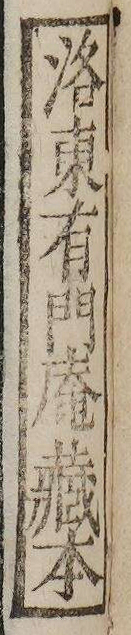 洛東有門庵藏本